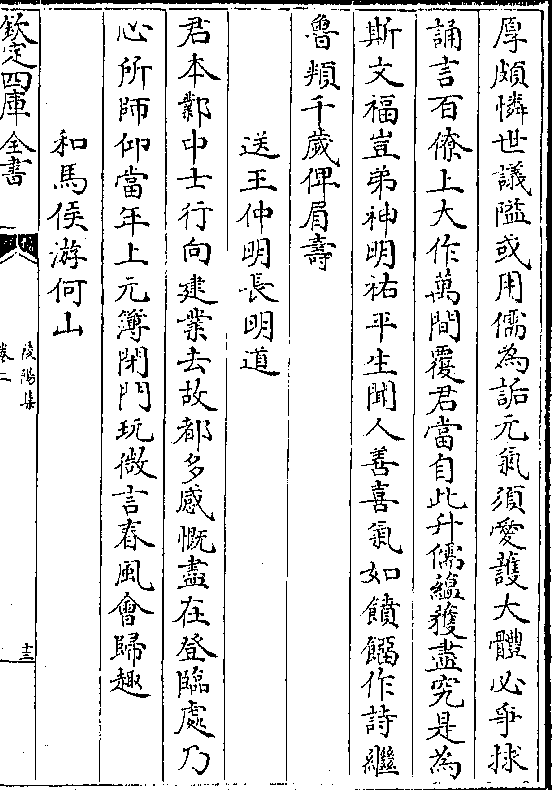 厚頗憐世議隘或用儒為詬元氣須愛護大體必爭捄
誦言百僚上大作萬間覆君當自此升儒緼獲盡究是為
斯文福豈弟神明祐平生聞人善喜氣如饋餾作詩繼
魯頖千歲俾眉壽
送王仲明長明道
君本鄴中士行向建業去故都多感慨盡在登臨處乃
心所師仰當年上元簿閉門玩微言春風會歸趣
和馬侯游何山
欽定四庫全書
陵陽集
卷二
十三